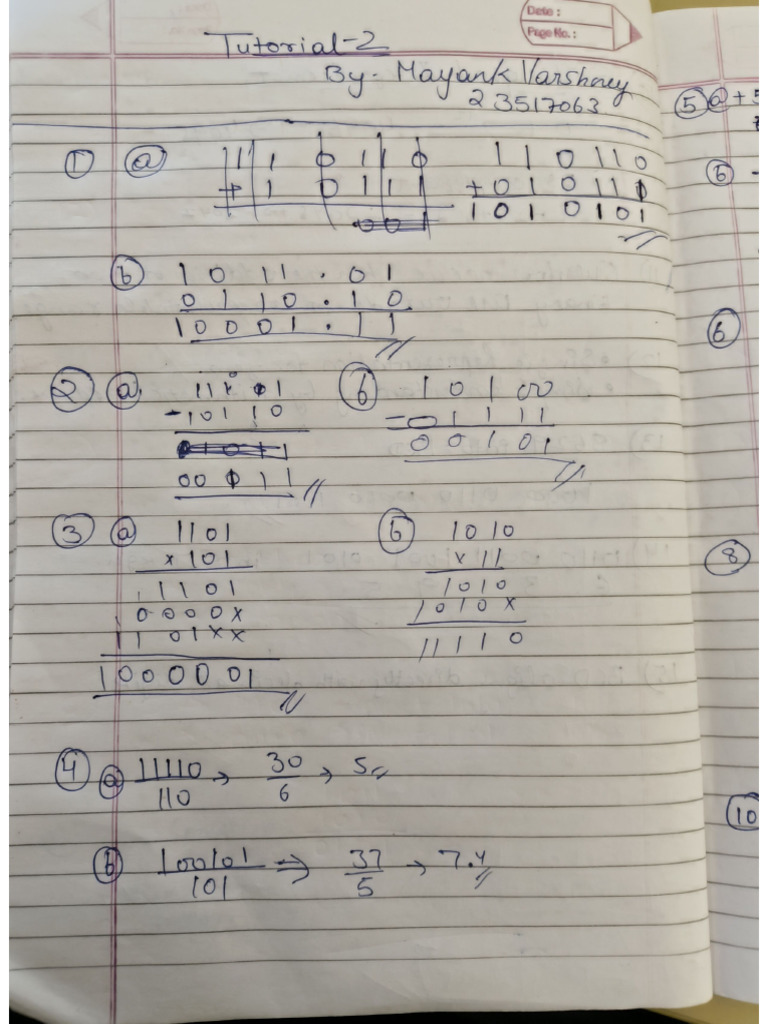 Date :
Page No. :
Tutorial-2
By- Mayank Varshney
23517063
① ⓐ 11 1 0 1 1 0 1 1 0 1 1 0
+ 1 0 1 1 1 + 0 1 0 1 1 1
1 0 1 0 1 0 1
ⓑ 1 0 11 . 0 1
0 1 10 . 1 0
1 0 0 0 1 . 1 1
② ⓐ 11 0 0 1 ⓑ 1 0 1 00
- 1 0 1 1 0 - 0 1 1 1 1
0 0 1 0 1
00 0 1 1
③ ⓐ 1101 ⓑ 1010
× 101 × 11
1101 1010
0000× 1010×
1101×× 11110
1000001
④ ⓐ 11110/110 → 30/6 → 5
ⓑ 100101/101 ⇒ 37/5 → 7.4
⑤ ⓐ + 5
ⓑ -
⑥
⑧
⑩